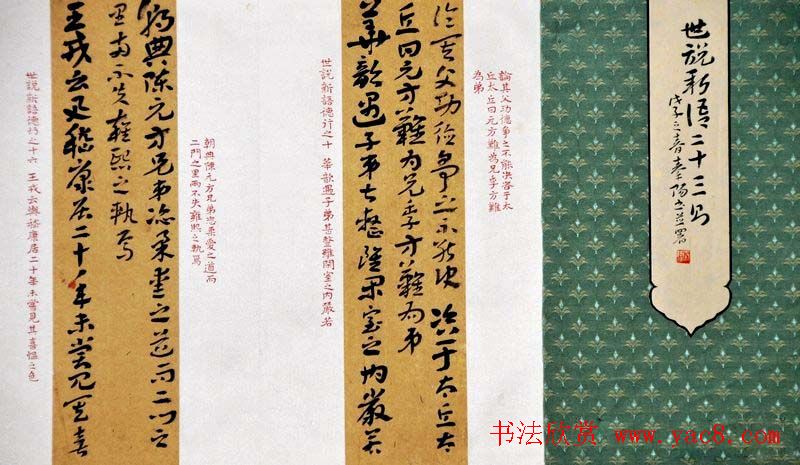 世說新語二十三則
論其父功德爭之不能決咨于太
丘太丘曰元方難為兄季方難
為弟
論其父功德爭之不能決咨于太丘太
丘曰元方難為兄季方難為弟
華歆遇子弟甚整雖閑室之內嚴若
世說新語德行之十 華歆遇子弟甚整雖閑室之內嚴若
朝典陳元方兄弟恣柔愛之道而
二門之里兩不失雍熙之軌焉
朝典陳元方兄弟恣柔愛之道而二門之
里兩不失雍熙之軌焉
王戎云與嵇康居二十年未嘗見其喜
世說新語德行之十六 王戎云與嵇康居二十年未嘗見其喜慍之色
书法欣赏 www.yac8.com